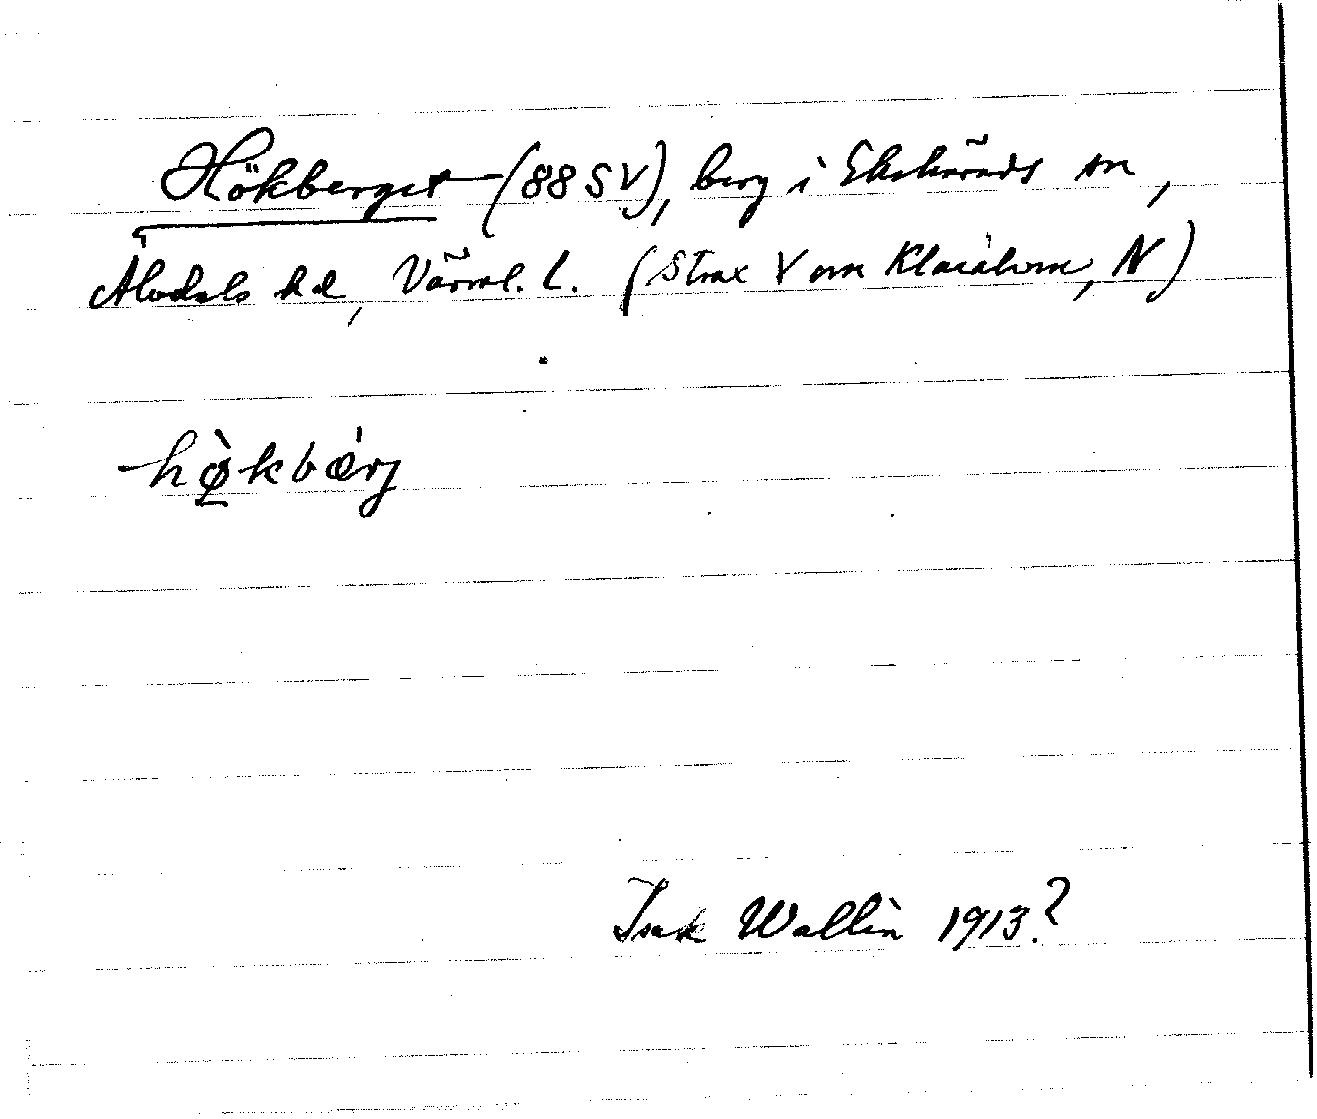 Hökberget (88 SV), berg i Ekshärads sn,
Älvdals hd, Värml. l. (Strax V om Klarälven, N)
hø̀kbǽrj
Isak Wallin 1913?